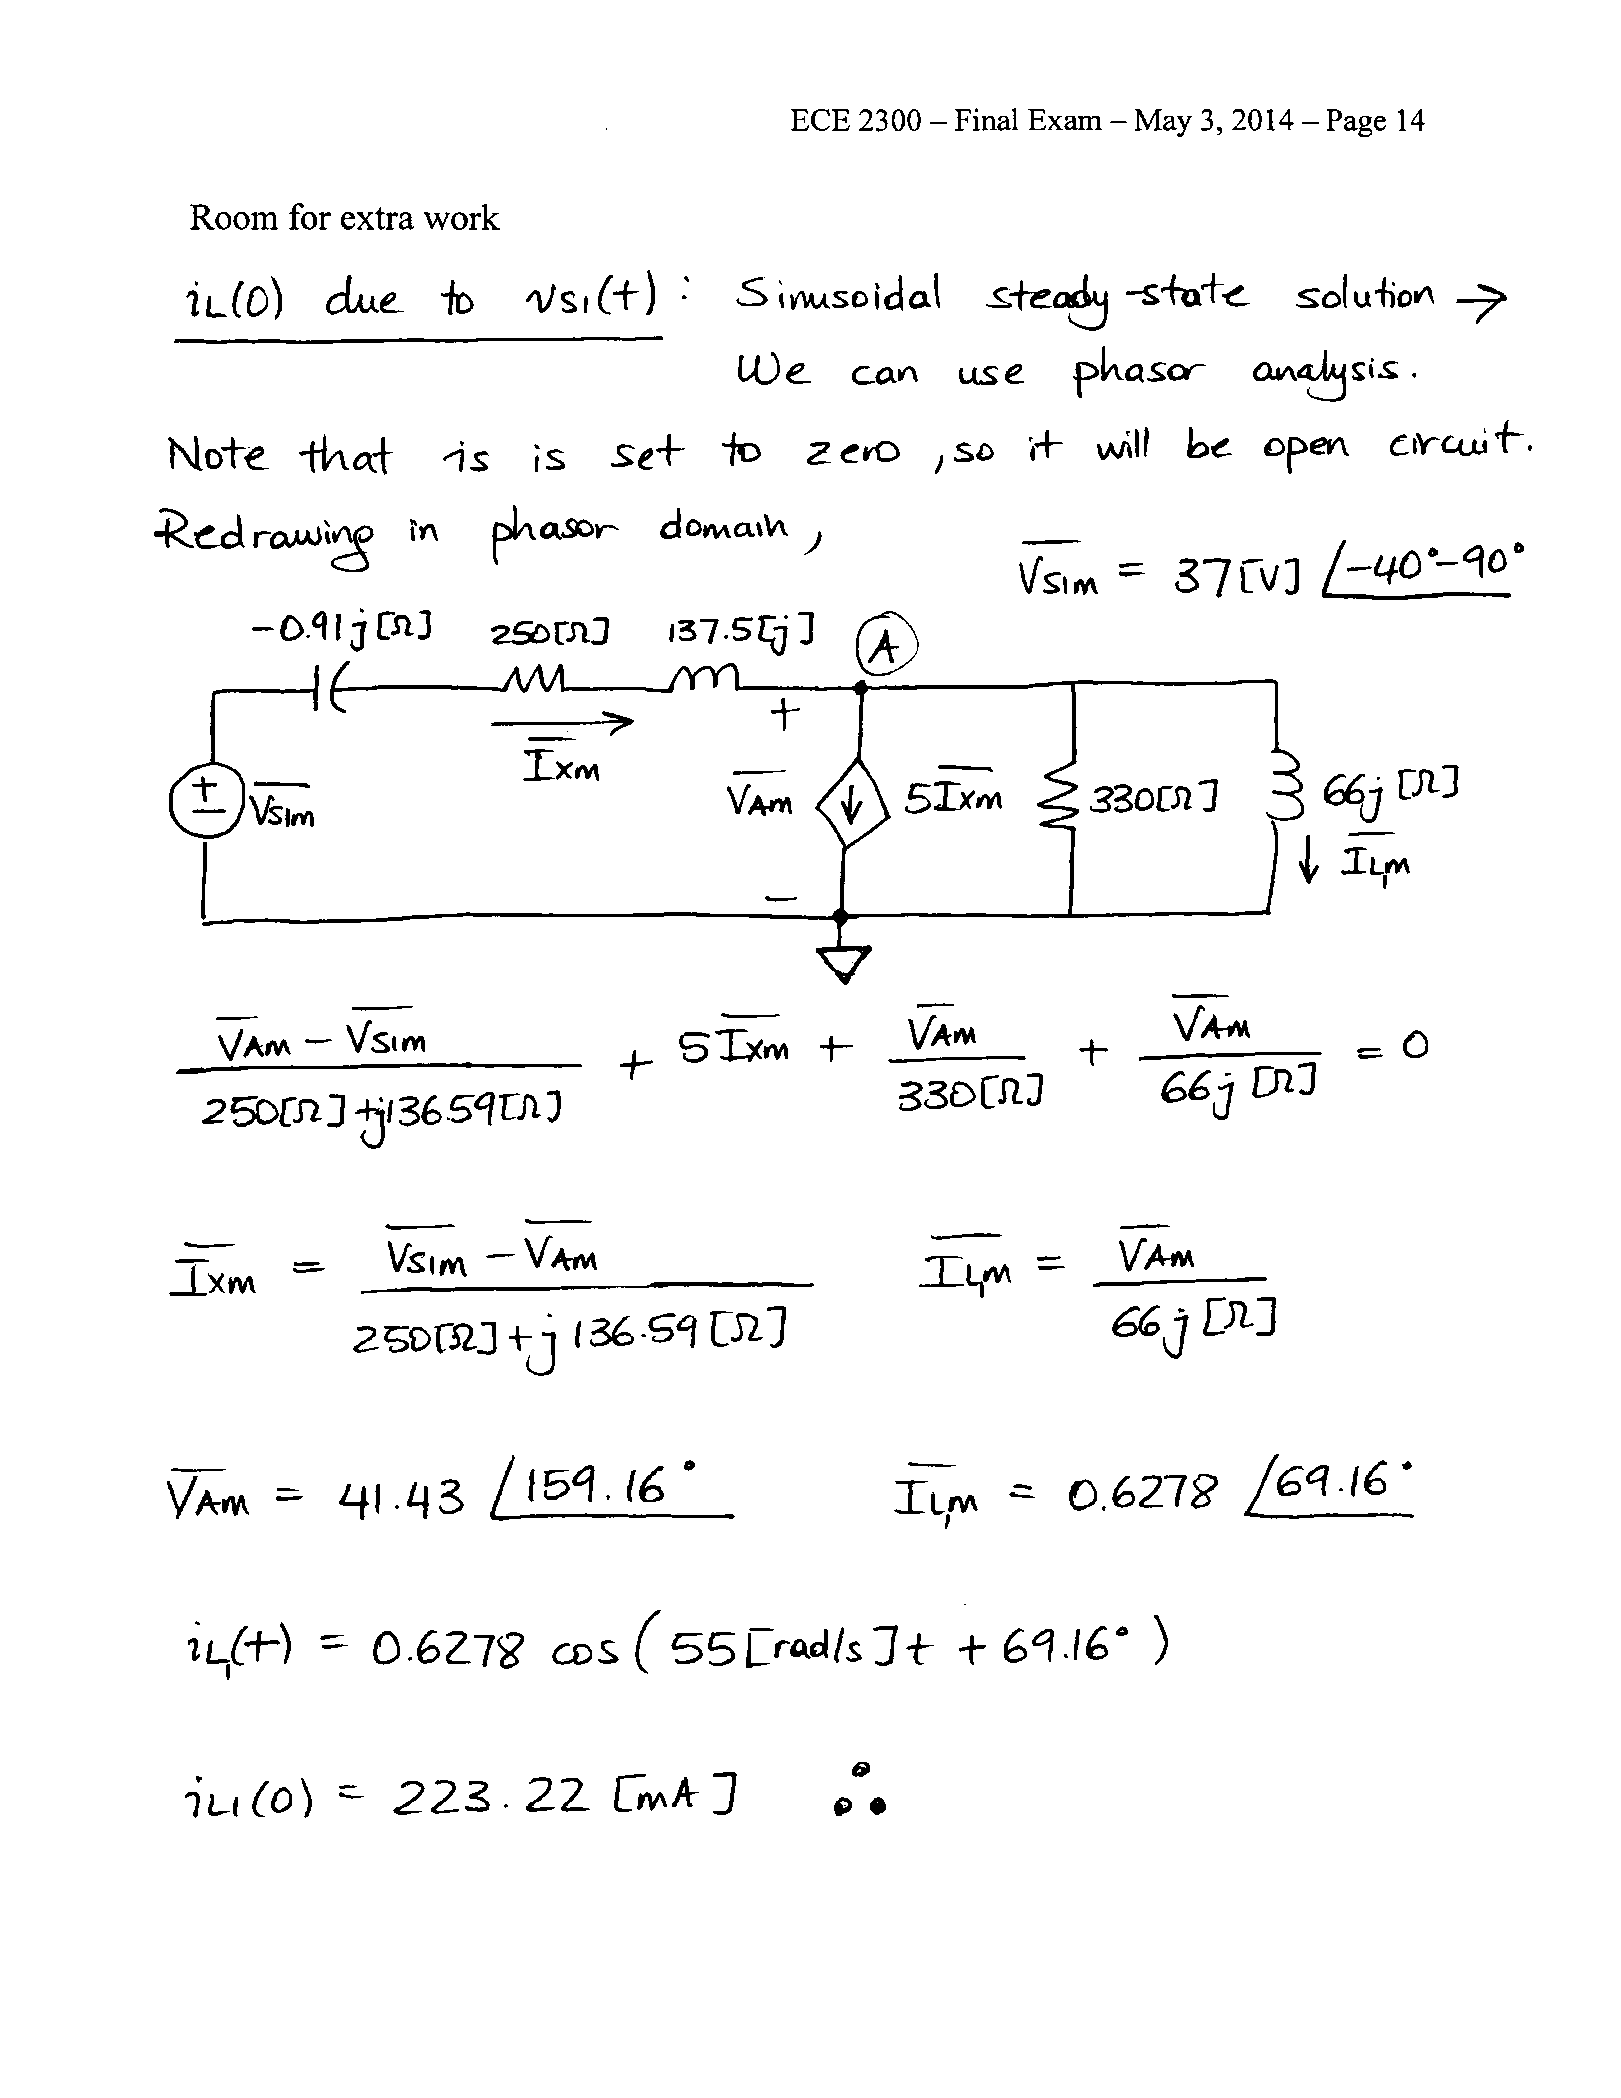 ECE 2300 – Final Exam – May 3, 2014 – Page 14
Room for extra work
iL(0) due to vS1(t) : Sinusoidal steady-state solution →
We can use phasor analysis.
Note that is is set to zero, so it will be open circuit.
Redrawing in phasor domain,
V̅S1m = 37[V] ∠-40°-90°
-0.91j[Ω] 250[Ω] 137.5[j] A
+
I̅xm
+ - V̅S1m V̅Am 5I̅xm 330[Ω] 66j[Ω]
↓ I̅L1m
-
(V̅Am - V̅S1m)/(250[Ω]+j136.59[Ω]) + 5I̅xm + V̅Am/330[Ω] + V̅Am/66j[Ω] = 0
I̅xm = (V̅S1m - V̅Am)/(250[Ω]+j136.59[Ω]) I̅L1m = V̅Am/66j[Ω]
V̅Am = 41.43 ∠159.16° I̅L1m = 0.6278 ∠69.16°
iL1(t) = 0.6278 cos(55[rad/s]t + 69.16°)
iL1(0) = 223.22 [mA] ∴